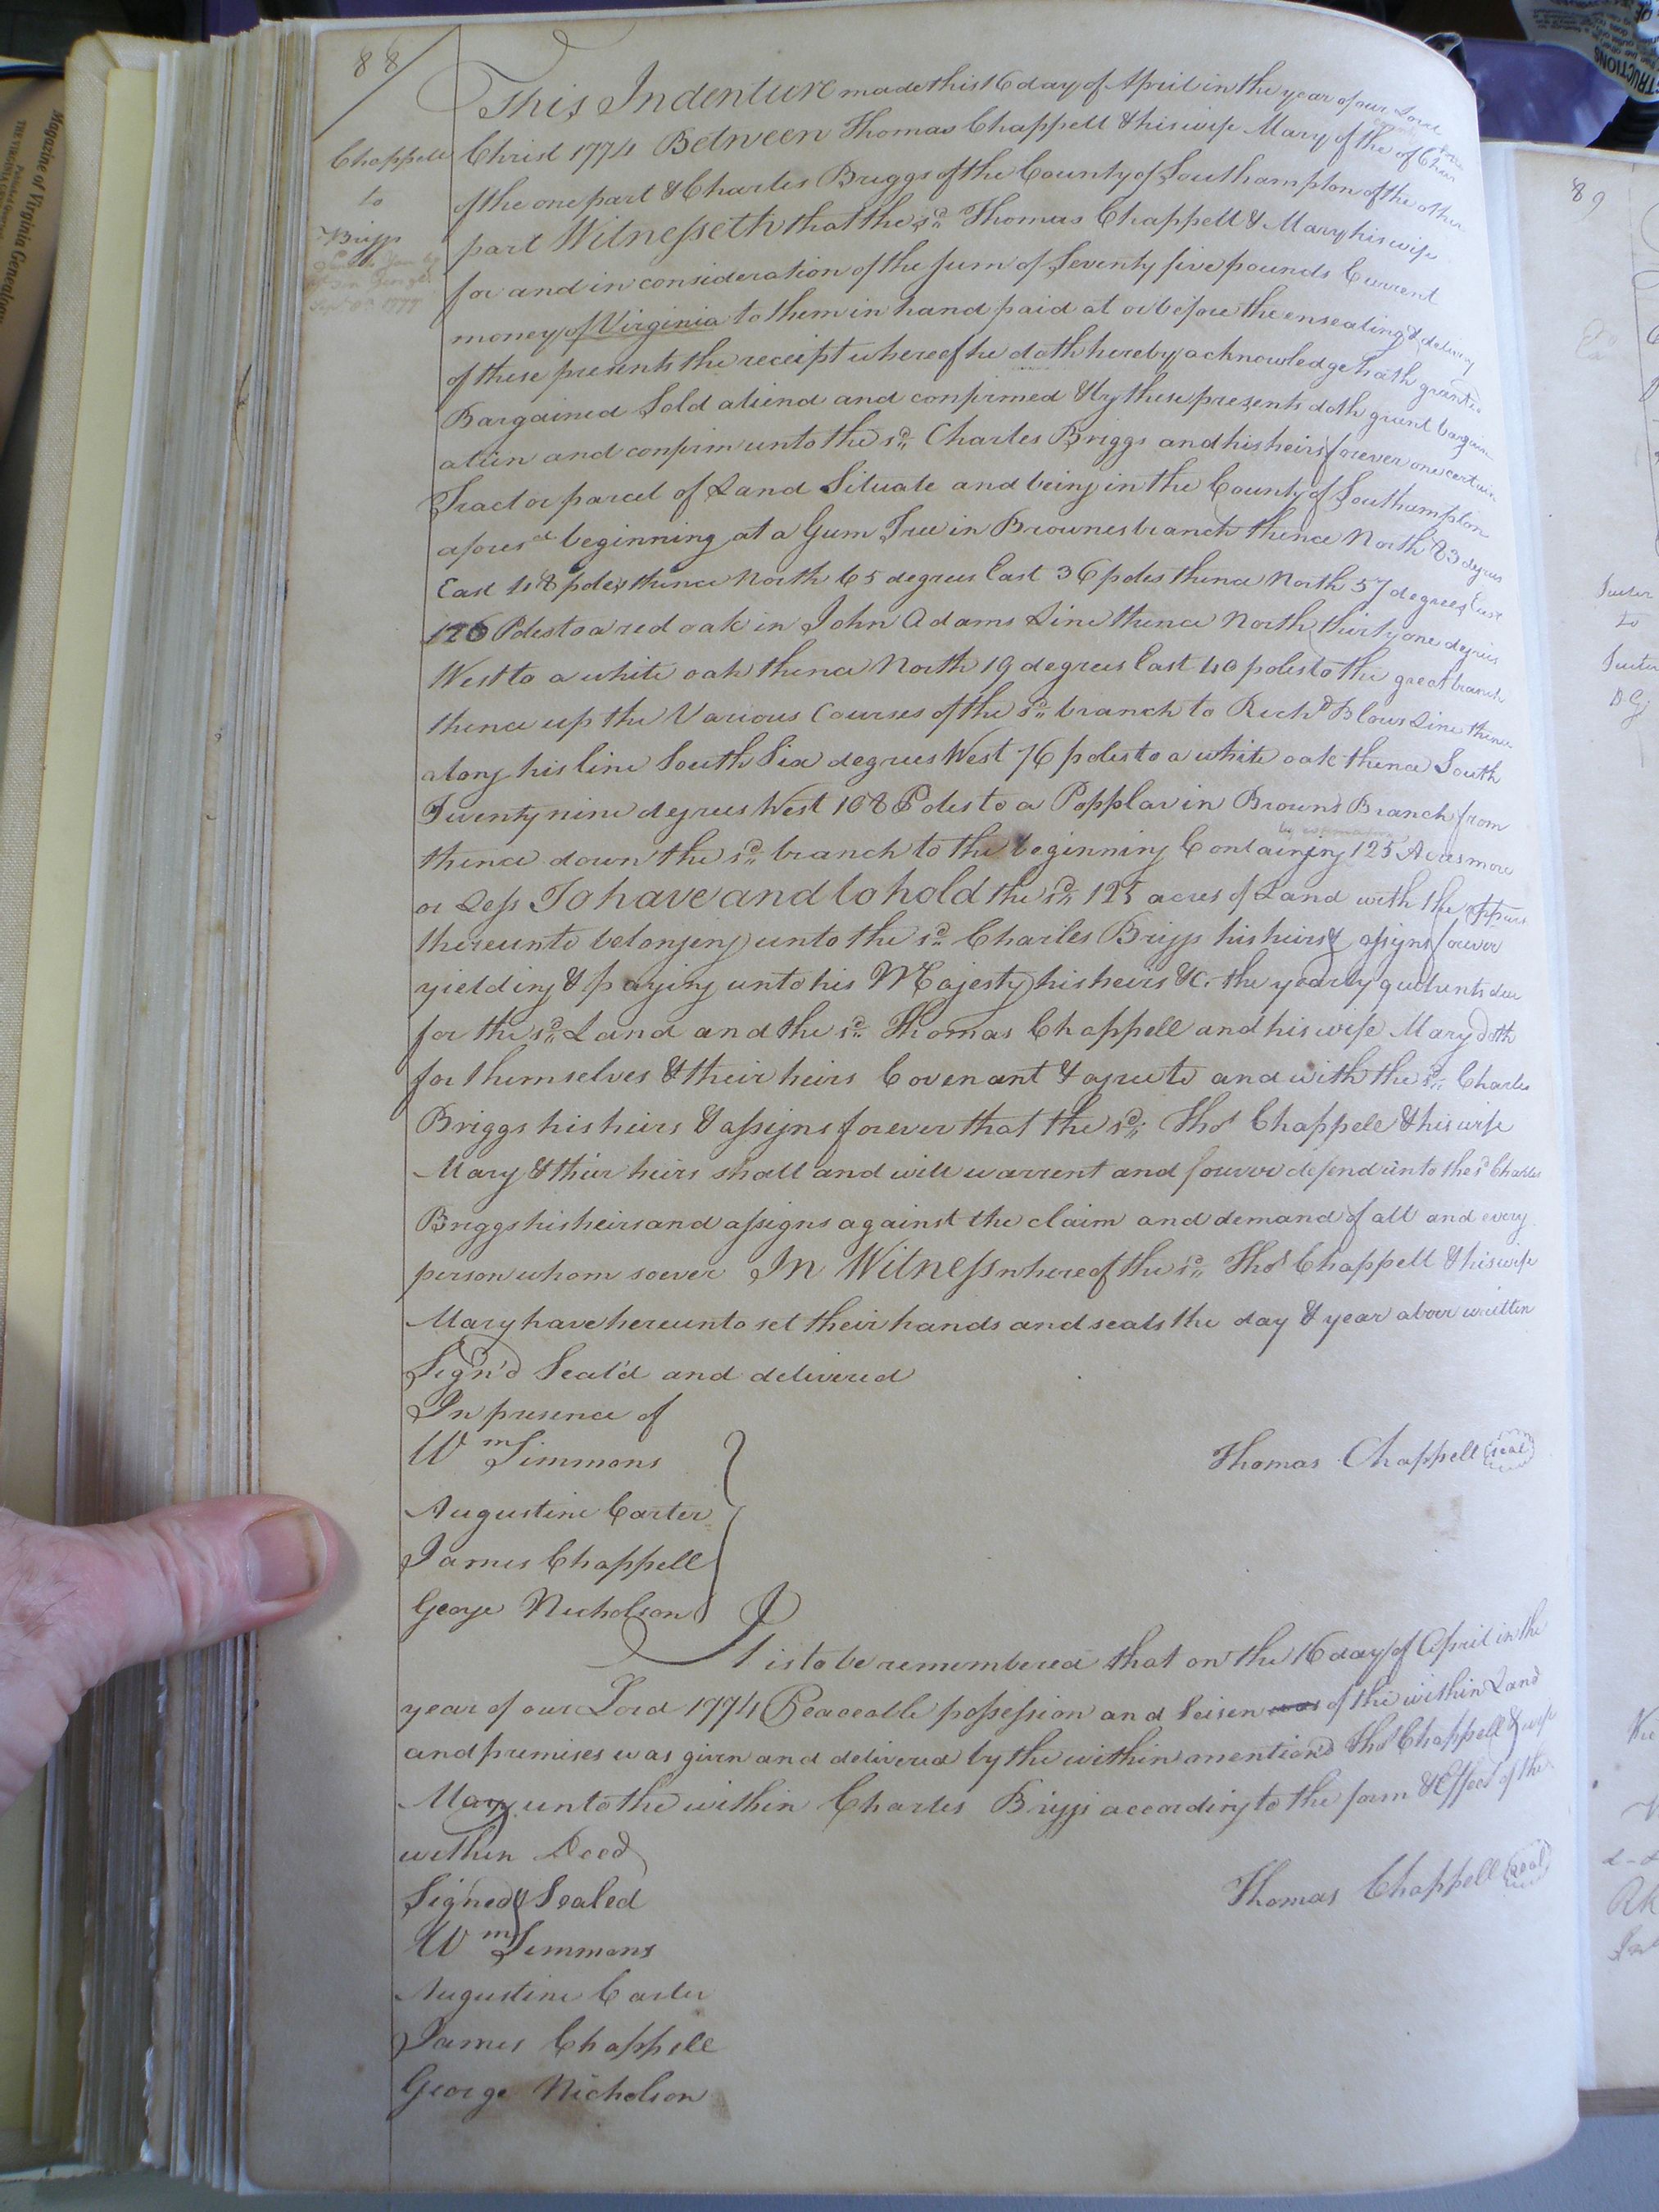 88
Chappell
to
Briggs
Sept 8th 1777
This Indenture made this 16 day of April in the year of our Lord
Christ 1774 Between Thomas Chappell & his wife Mary of the
of the one part & Charles Briggs of the County of Southampton of the other
part Witnesseth that the sd. Thomas Chappell & Mary his wife
for and in consideration of the sum of Seventy five pounds Current
money of Virginia to them in hand paid at or before the ensealing & delivery
of these presents the receipt whereof he doth hereby acknowledge hath granted
Bargained Sold aliend and confirmed & by these presents doth grant bargain
alien and confirm unto the sd. Charles Briggs and his heirs forever one certain
Tract or parcel of Land Situate and being in the County of Southampton
aforesd beginning at a Gum Tree in Brownes branch thence North 83 degrees
East 48 poles thence North 65 degrees East 36 poles thence North 57 degrees East
126 Poles to a red oak in John Adams Line thence North thirty one degrees
West to a white oak thence North 19 degrees East 40 poles to the great branch
thence up the Various Courses of the sd. branch to Richd Blows Line thence
along his line South Six degrees West 76 poles to a white oak thence South
Twenty nine degrees West 108 Poles to a Popplar in Browns Branch from
thence down the sd. branch to the beginning Containing by estimation 125 Acres more
or Less To have and to hold the sd. 125 acres of Land with the appurs
thereunto belonging unto the sd. Charles Briggs his heirs & assigns forever
yielding & paying unto his Majesty his heirs &c. the yearly quitrents due
for the sd. Land and the sd. Thomas Chappell and his wife Mary doth
for themselves & their heirs Covenant & agree to and with the sd. Charles
Briggs his heirs & assigns forever that the sd. Thos Chappell & his wife
Mary & their heirs shall and will warrent and forever defend unto the sd Charles
Briggs his heirs and assigns against the claim and demand of all and every
person whom soever In Witness whereof the sd. Thos Chappell & his wife
Mary have hereunto set their hands and seals the day & year above written
Sign'd Seal'd and delivered
In presence of
Wm Simmons
Thomas Chappell seal
Augustine Carter
James Chappell
George Nicholson
It is to be remembered that on the 16 day of April in the
year of our Lord 1774 Peaceable possession and Seisen was of the within Land
and premises was given and delivered by the within mention'd Thos Chappell & wife
Mary unto the within Charles Briggs according to the form & Effect of the
within Deed
Signed & Sealed
Thomas Chappell seal
Wm Simmons
Augustine Carter
James Chappell
George Nicholson
89
to
Magazine of Virginia Genealogy